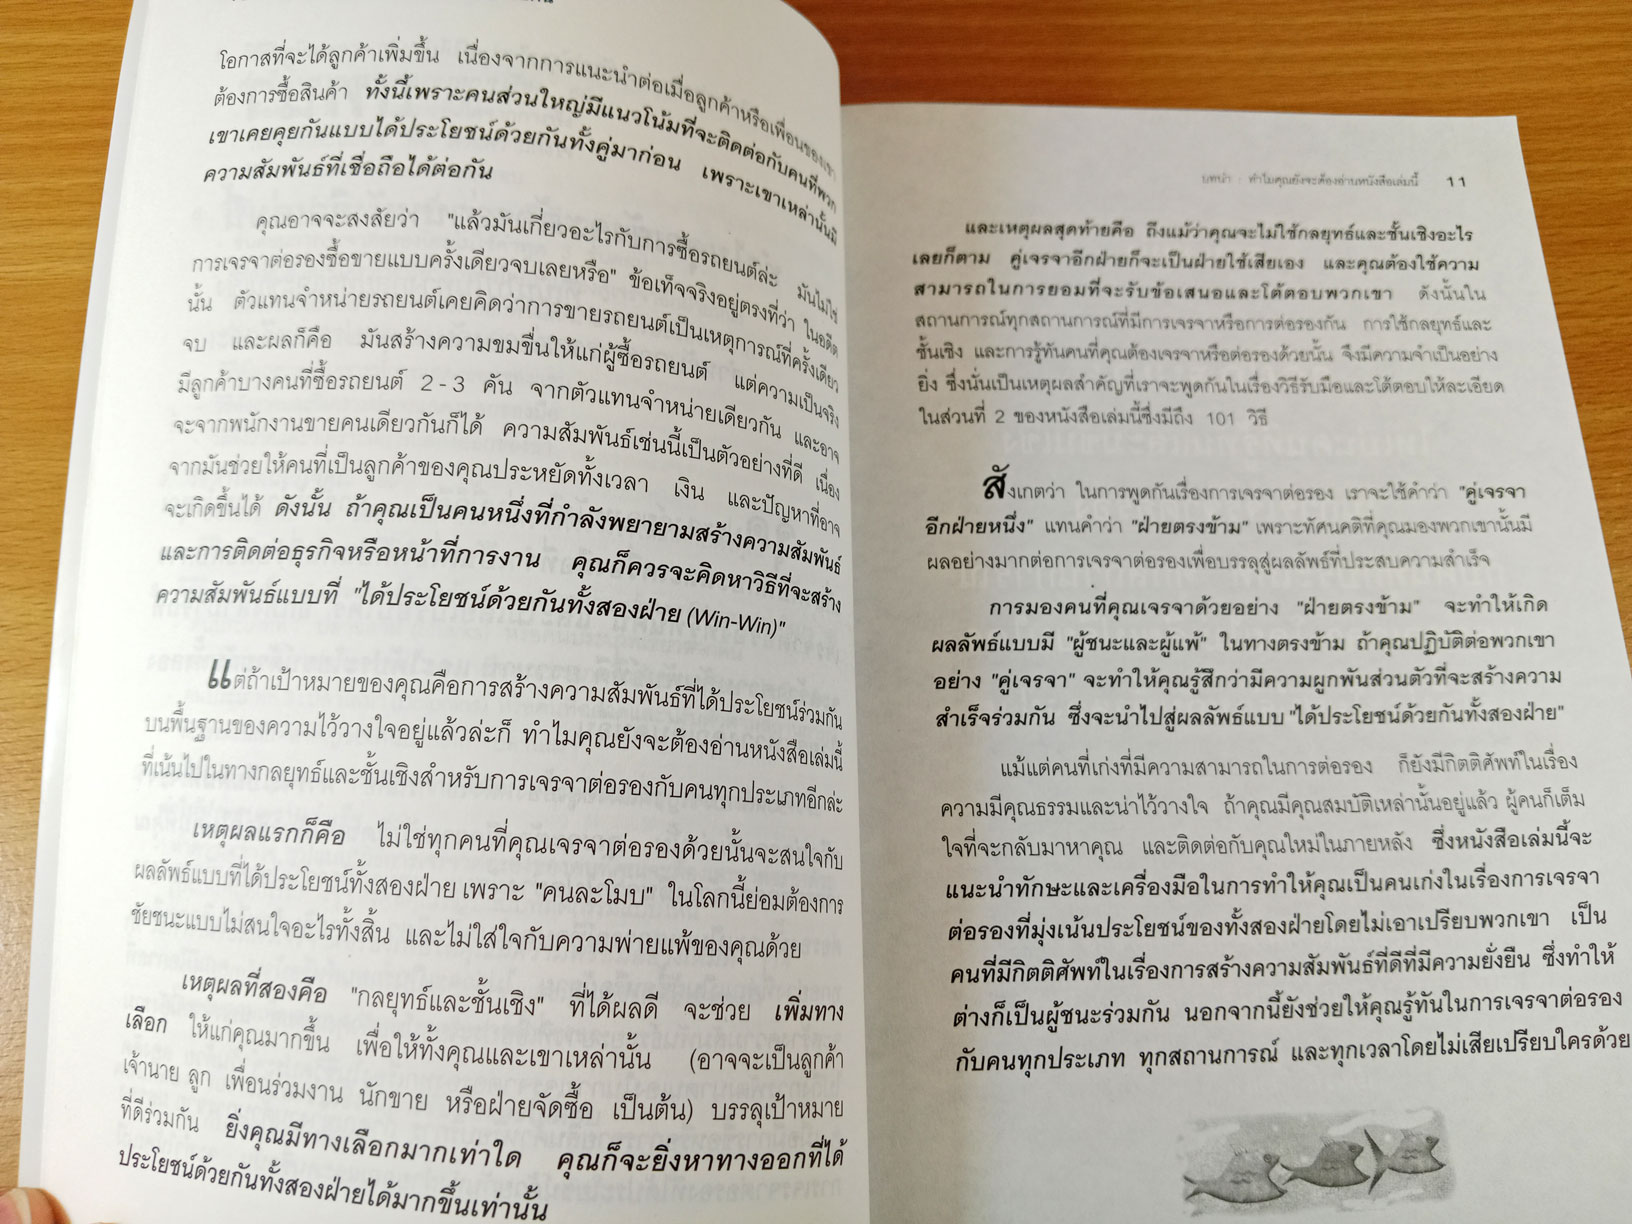 โอกาสที่จะได้ลูกค้าเพิ่มขึ้น เนื่องจากการแนะนำต่อเมื่อลูกค้าหรือเพื่อนของเขา
ต้องการซื้อสินค้า ทั้งนี้เพราะคนส่วนใหญ่มีแนวโน้มที่จะติดต่อกับคนที่พวก
เขาเคยคุยกันแบบได้ประโยชน์ด้วยกันทั้งคู่มาก่อน เพราะเขาเหล่านั้นมี
ความสัมพันธ์ที่เชื่อถือได้ต่อกัน
คุณอาจจะสงสัยว่า "แล้วมันเกี่ยวอะไรกับการซื้อรถยนต์ล่ะ มันไม่ใช่
การเจรจาต่อรองซื้อขายแบบครั้งเดียวจบเลยหรือ" ข้อเท็จจริงอยู่ตรงที่ว่า ในอดีต
นั้น ตัวแทนจำหน่ายรถยนต์เคยคิดว่าการขายรถยนต์เป็นเหตุการณ์ที่ครั้งเดียว
จบ และผลก็คือ มันสร้างความขมขื่นให้แก่ผู้ซื้อรถยนต์ แต่ความเป็นจริง
มีลูกค้าบางคนที่ซื้อรถยนต์ 2-3 คัน จากตัวแทนจำหน่ายเดียวกัน และอาจ
จะจากพนักงานขายคนเดียวกันก็ได้ ความสัมพันธ์เช่นนี้เป็นตัวอย่างที่ดี เนื่อง
จากมันช่วยให้คนที่เป็นลูกค้าของคุณประหยัดทั้งเวลา เงิน และปัญหาที่อาจ
จะเกิดขึ้นได้ ดังนั้น ถ้าคุณเป็นคนหนึ่งที่กำลังพยายามสร้างความสัมพันธ์
และการติดต่อธุรกิจหรือหน้าที่การงาน คุณก็ควรจะคิดหาวิธีที่จะสร้าง
ความสัมพันธ์แบบที่ "ได้ประโยชน์ด้วยกันทั้งสองฝ่าย (Win-Win)"
แต่ถ้าเป้าหมายของคุณคือการสร้างความสัมพันธ์ที่ได้ประโยชน์ร่วมกัน
บนพื้นฐานของความไว้วางใจอยู่แล้วล่ะก็ ทำไมคุณยังจะต้องอ่านหนังสือเล่มนี้
ที่เน้นไปในทางกลยุทธ์และชั้นเชิงสำหรับการเจรจาต่อรองกับคนทุกประเภทอีกล่ะ
เหตุผลแรกก็คือ ไม่ใช่ทุกคนที่คุณเจรจาต่อรองด้วยนั้นจะสนใจกับ
ผลลัพธ์แบบที่ได้ประโยชน์ทั้งสองฝ่าย เพราะ "คนละโมบ" ในโลกนี้ย่อมต้องการ
ชัยชนะแบบไม่สนใจอะไรทั้งสิ้น และไม่ใส่ใจกับความพ่ายแพ้ของคุณด้วย
เหตุผลที่สองคือ "กลยุทธ์และชั้นเชิง" ที่ได้ผลดี จะช่วย เพิ่มทาง
เลือก ให้แก่คุณมากขึ้น เพื่อให้ทั้งคุณและเขาเหล่านั้น (อาจจะเป็นลูกค้า
เจ้านาย ลูก เพื่อนร่วมงาน นักขาย หรือฝ่ายจัดซื้อ เป็นต้น) บรรลุเป้าหมาย
ที่ดีร่วมกัน ยิ่งคุณมีทางเลือกมากเท่าใด คุณก็จะยิ่งหาทางออกที่ได้
ประโยชน์ด้วยกันทั้งสองฝ่ายได้มากขึ้นเท่านั้น
บทนำ : ทำไมคุณยังจะต้องอ่านหนังสือเล่มนี้ 11
และเหตุผลสุดท้ายคือ ถึงแม้ว่าคุณจะไม่ใช้กลยุทธ์และชั้นเชิงอะไร
เลยก็ตาม คู่เจรจาอีกฝ่ายก็จะเป็นฝ่ายใช้เสียเอง และคุณต้องใช้ความ
สามารถในการยอมที่จะรับข้อเสนอและโต้ตอบพวกเขา ดังนั้นใน
สถานการณ์ทุกสถานการณ์ที่มีการเจรจาหรือการต่อรองกัน การใช้กลยุทธ์และ
ชั้นเชิง และการรู้ทันคนที่คุณต้องเจรจาหรือต่อรองด้วยนั้น จึงมีความจำเป็นอย่าง
ยิ่ง ซึ่งนั่นเป็นเหตุผลสำคัญที่เราจะพูดกันในเรื่องวิธีรับมือและโต้ตอบให้ละเอียด
ในส่วนที่ 2 ของหนังสือเล่มนี้ซึ่งมีถึง 101 วิธี
สังเกตว่า ในการพูดกันเรื่องการเจรจาต่อรอง เราจะใช้คำว่า "คู่เจรจา
อีกฝ่ายหนึ่ง" แทนคำว่า "ฝ่ายตรงข้าม" เพราะทัศนคติที่คุณมองพวกเขานั้นมี
ผลอย่างมากต่อการเจรจาต่อรองเพื่อบรรลุสู่ผลลัพธ์ที่ประสบความสำเร็จ
การมองคนที่คุณเจรจาด้วยอย่าง "ฝ่ายตรงข้าม" จะทำให้เกิด
ผลลัพธ์แบบมี "ผู้ชนะและผู้แพ้" ในทางตรงข้าม ถ้าคุณปฏิบัติต่อพวกเขา
อย่าง "คู่เจรจา" จะทำให้คุณรู้สึกว่ามีความผูกพันส่วนตัวที่จะสร้างความ
สำเร็จร่วมกัน ซึ่งจะนำไปสู่ผลลัพธ์แบบ "ได้ประโยชน์ด้วยกันทั้งสองฝ่าย"
แม้แต่คนที่เก่งที่มีความสามารถในการต่อรอง ก็ยังมีกิตติศัพท์ในเรื่อง
ความมีคุณธรรมและน่าไว้วางใจ ถ้าคุณมีคุณสมบัติเหล่านั้นอยู่แล้ว ผู้คนก็เต็ม
ใจที่จะกลับมาหาคุณ และติดต่อกับคุณใหม่ในภายหลัง ซึ่งหนังสือเล่มนี้จะ
แนะนำทักษะและเครื่องมือในการทำให้คุณเป็นคนเก่งในเรื่องการเจรจา
ต่อรองที่มุ่งเน้นประโยชน์ของทั้งสองฝ่ายโดยไม่เอาเปรียบพวกเขา เป็น
คนที่มีกิตติศัพท์ในเรื่องการสร้างความสัมพันธ์ที่ดีที่มีความยั่งยืน ซึ่งทำให้
ต่างก็เป็นผู้ชนะร่วมกัน นอกจากนี้ยังช่วยให้คุณรู้ทันในการเจรจาต่อรอง
กับคนทุกประเภท ทุกสถานการณ์ และทุกเวลาโดยไม่เสียเปรียบใครด้วย